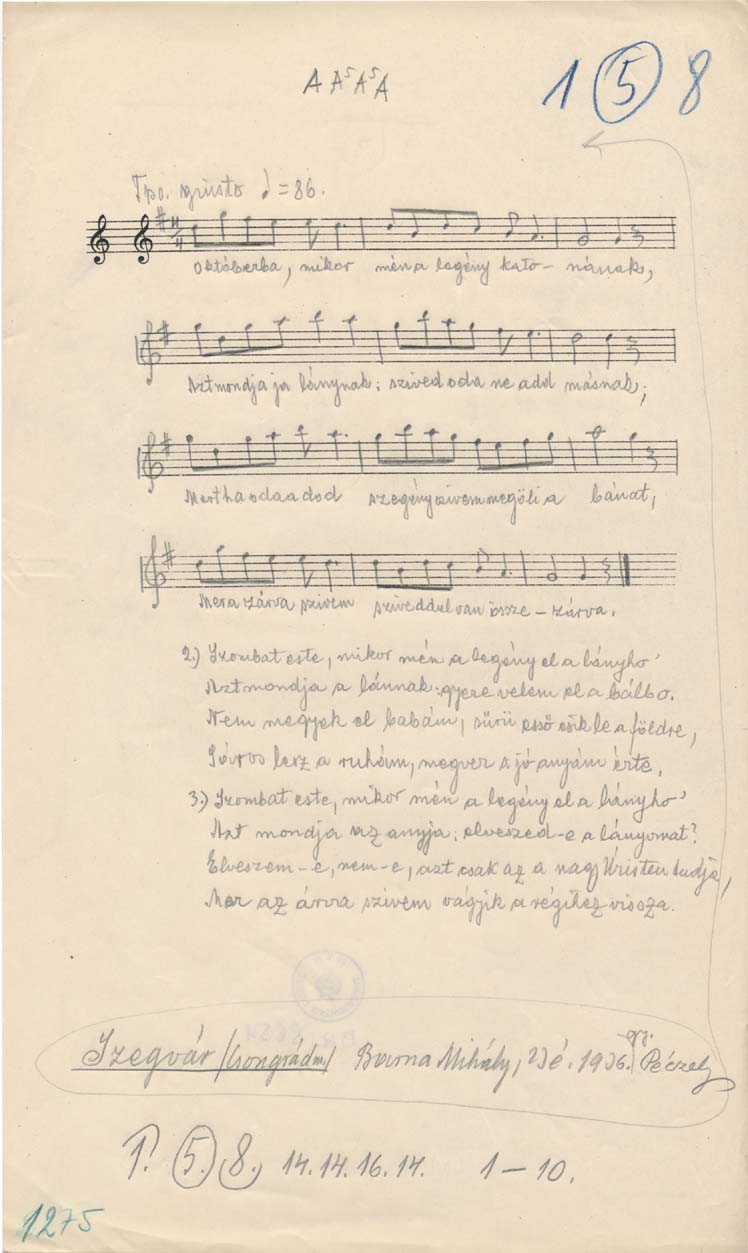 A A⁵A⁵A
1 5 8
Tpo. giusto ♩ = 86.
Októberba, mikor mén a legény kato- nának,
Aztmondja ja lánynak: szived oda ne add másnak;
Mert ha oda adod szegény szivem megöli a bánat,
Mer a zárva szivem sziveddel van össze - zárva.
2.) Szombat este, mikor mén a legény el a lányho'
Aztmondja a lánnak: gyere velem el a bálbo.
Nem megyek el babám, sürü esső esik le a földre,
Sáros lesz a ruhám, megver a jó anyám érte.
3.) Szombat este, mikor mén a legény el a lányho'
Azt mondja az anyja: elveszed-e a lányomat?
Elveszem-e, nem-e, azt csak az a nagy Úristen tudja,
Mer az árva szivem vágyik a régihez vissza.
Szegvár /Csongrádm/ Barna Mihály, 23 é. 1936. gy. Péczely
1. 5. 8. 14. 14. 16. 14. 1 - 10.
1275